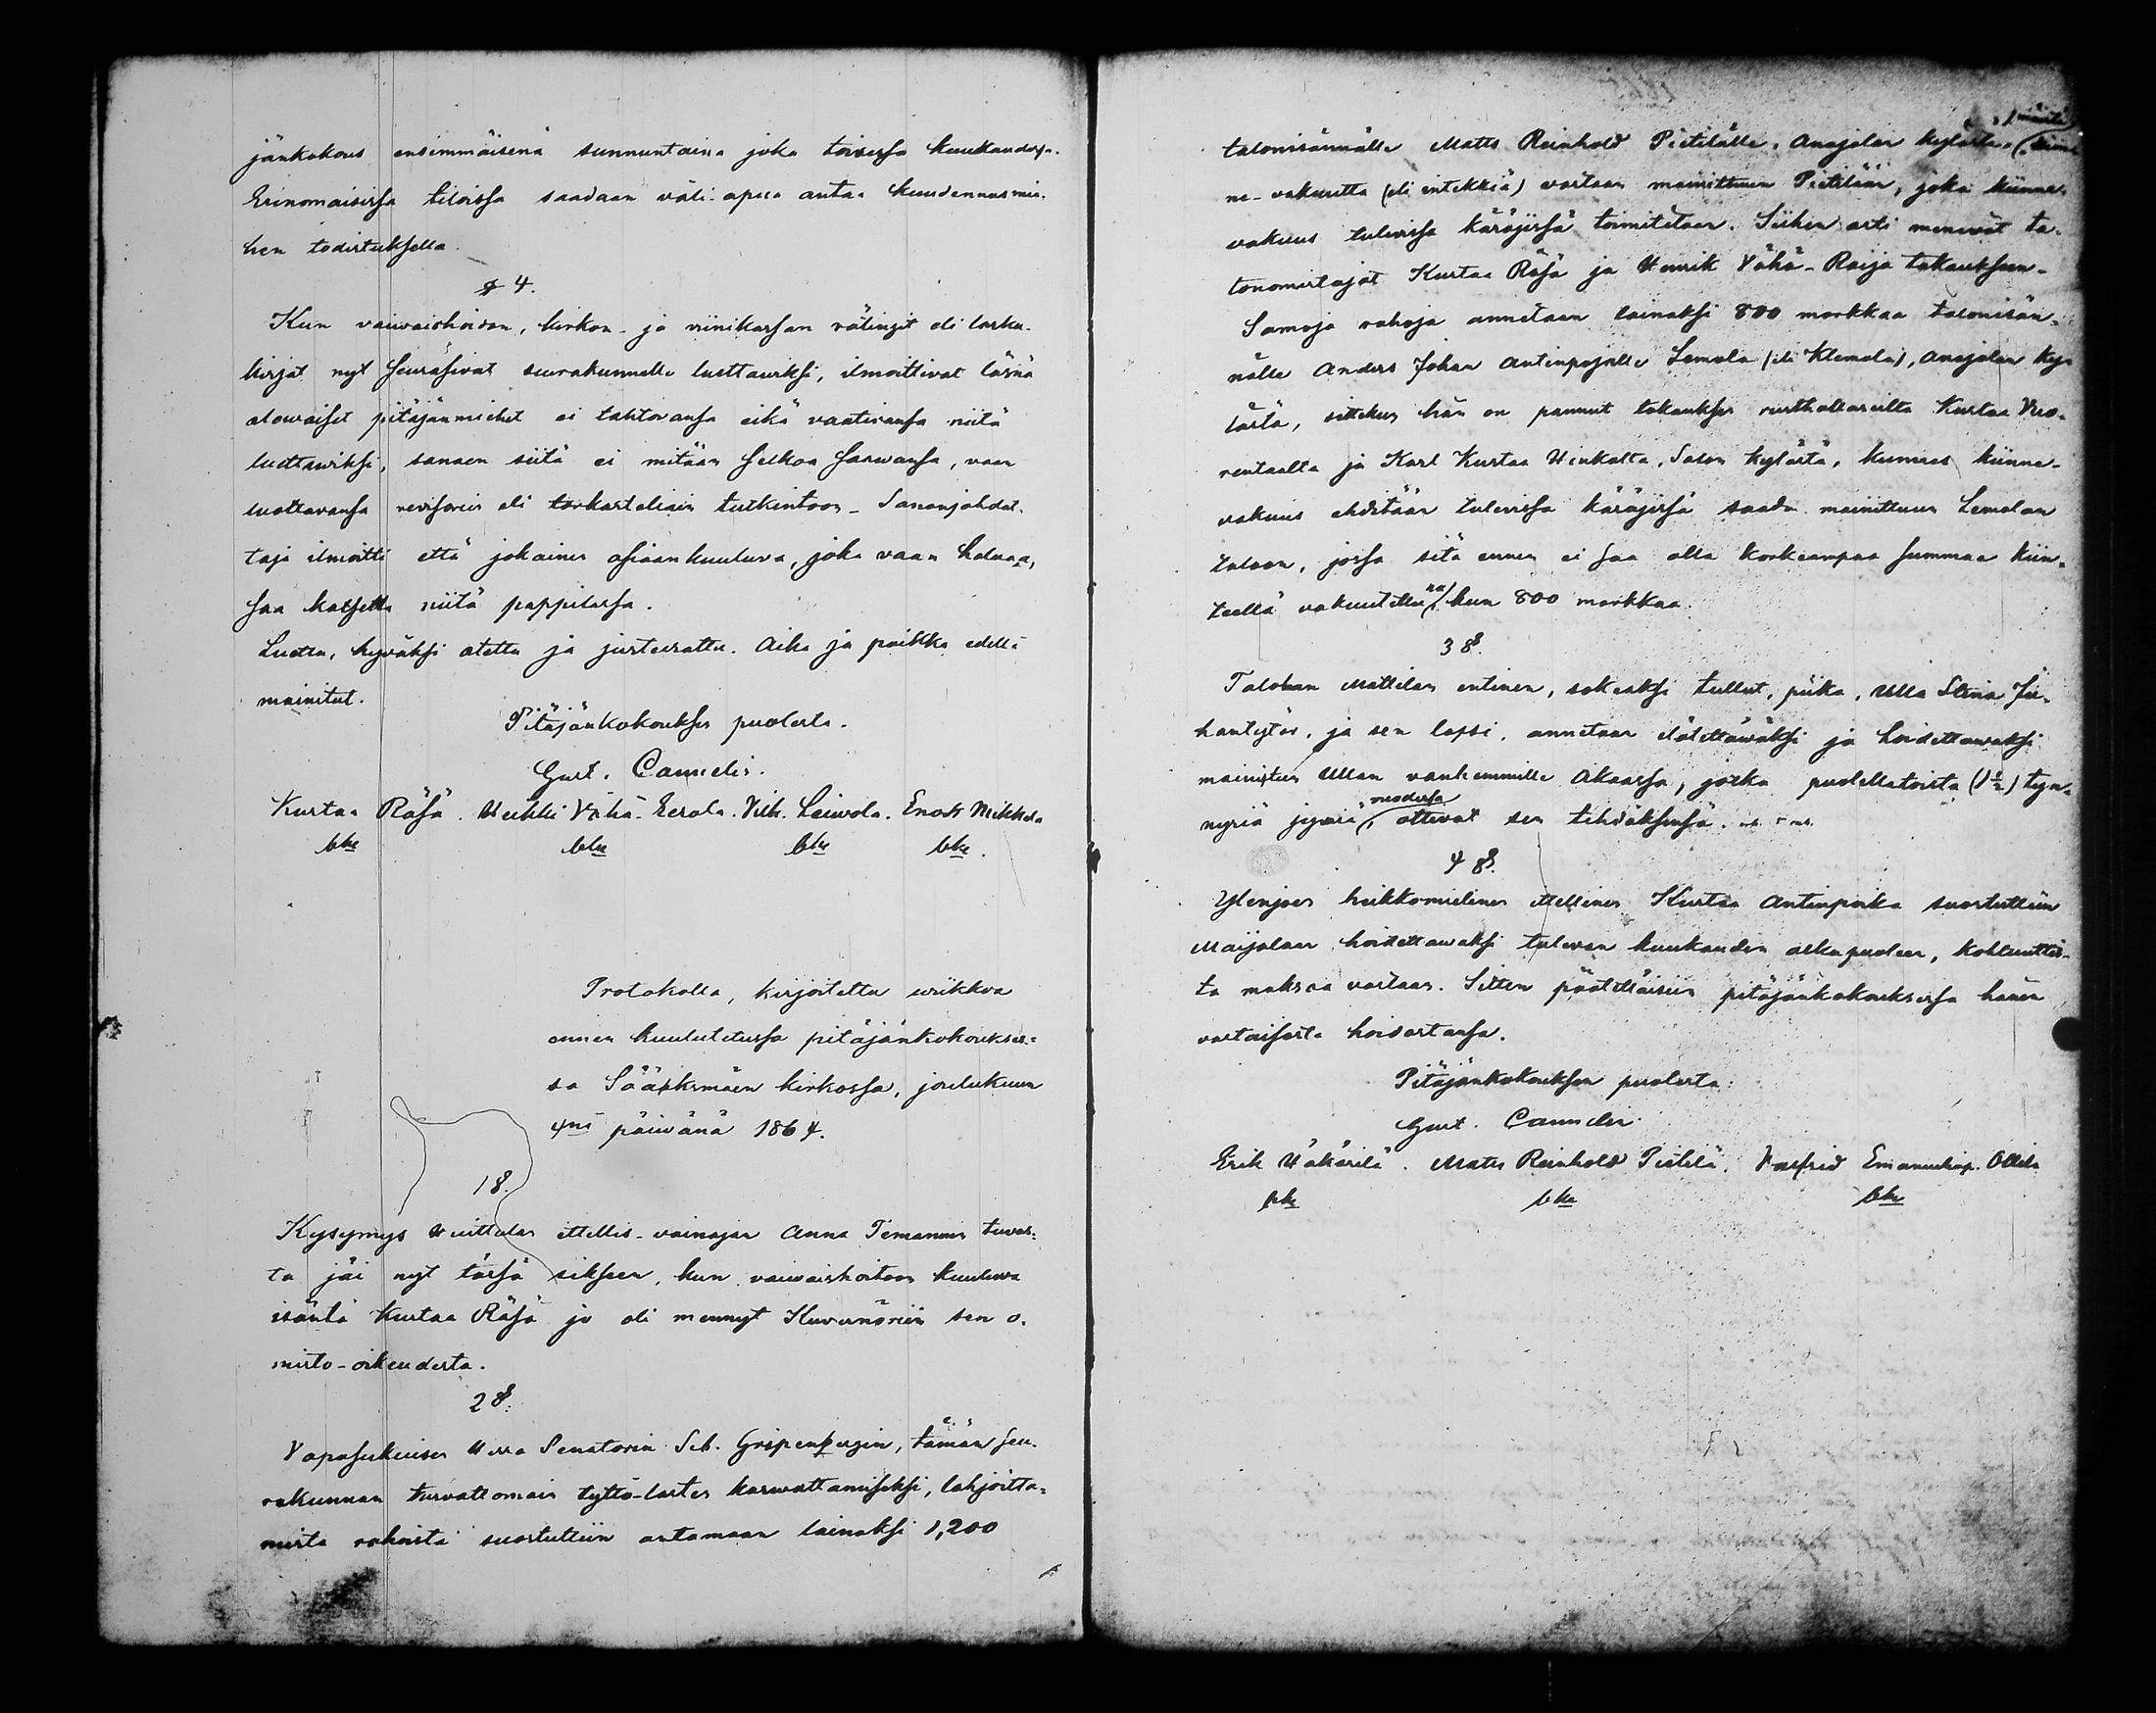 jänkokous ensimmäisenä sunnuntaina joka toisessa kuukaudessa.
Erinomaisissa tiloissa saadaan väli-apua antaa kuudennusmie-
hen todistuksella.
§ 4.
Kun vaivaishoidon, kirkon- ja viinikassan rätingit eli lasku-
kirjat nyt seuraisivat seurakunnalle luettaviksi, ilmoittivat läsnä
olewaiset pitäjänmiehet ei tahtovansa eikä vaativansa niitä
luettawiksi, sanoen siitä ei mitään selkoa saawansa, vaan
luottavansa revisorein eli tarkasteliain tutkintoon. Sananjohdat-
taja ilmoitti että jokainen asiaankuuluva, joka vaan haluaa,
saa katsella niitä pappilassa.
Luettu, hywäksi otettu ja justeerattu. Aika ja paikka edellä
mainitut.
Pitäjänkokouksen puolesta.
Gust. Cannelin.
Kustaa Räsä. Heikki Vähä-Eerola. Vilh. Leiwola. Enok Mikkola
bkr bkr bkr bkr.
Protokolla, kirjoitettu wiikkoa
ennen kuulutetussa pitäjänkokoukses-
sa Sääksmäen kirkossa, joulukuun
4nä päiwänä 1864.
1 §.
Kysymys Huittulan itellis-vainajan Anna Temannin tuvas-
ta jäi nyt tässä sikseen, kun vaivaishoitoon kuuluwa
isäntä Kustaa Räsä jo oli mennyt Kuvernöriin sen o-
misto-oikeudesta.
2 §.
Vapasukuisen Herra Senatorin Seb. Gripenbergin, tämän seu-
rakunnan turvattomain tyttö-lasten kaswattamiseksi, lahjoitta-
mista rahoista suostuttiin antamaan lainaksi 1,200
talonisännälle Matts Reinhold Pietilälle, Anajalan kylästä,
ne-vakuutta (eli intekkiä) vastaan mainittuun Pietilään, joka kiinne-
vakuus tulevissa käräjissä toimitetaan. Siihen asti menevät ta-
lonomistajat Kustaa Räsä ja Henrik Vähä-Raija takaukseen.
Samoja rahoja annetaan lainaksi 800 markkaa talonisän-
nälle Anders Johan Antinpojalle Lemola (eli Klemola), Anajalan ky-
lästä, sittekun hän on pannut takauksen rusthollareilta Kustaa Vuo-
rentaalta ja Karl Kustaa Uinkalta, Salon kylästä, kunnes kiinne-
vakuus ehditään tulevissa käräjissä saada mainittuun Lemolan
taloon, jossa sitä ennen ei saa olla korkeampaa summaa kiin-
teellä vakuutettuna, kun 800 markkaa.
3 §.
Talokan Mattilan entinen, sokeaksi tullut, piika, Ulla Stina Ju-
hantytär, ja sen lapsi, annetaan elätettäwäksi ja hoidettawaksi
mainitun Ullan vanhemmille Akaassa, jotka puolellatoista (1 1/2) tyn-
nyriä jyviä vuodessa, ottivat sen tehdäksensä.
4 §.
Ylenjoen heikkomielinen itellinen Kustaa Antinpoika suostuttiin
Maijalaan hoidettawaksi tulevan kuukauden alkupuoleen, kohtuullis-
ta maksoa vastaan. Sitten päätettäisiin pitäjänkokouksessa hänen
vastaisesta hoidostansa.
Pitäjänkokouksen puolesta:
Gust. Cannelin.
Erik Häkärilä. Matts Reinhold Pietilä. Valfrid Emanuelinp. Ollila
bkr bkr bkr